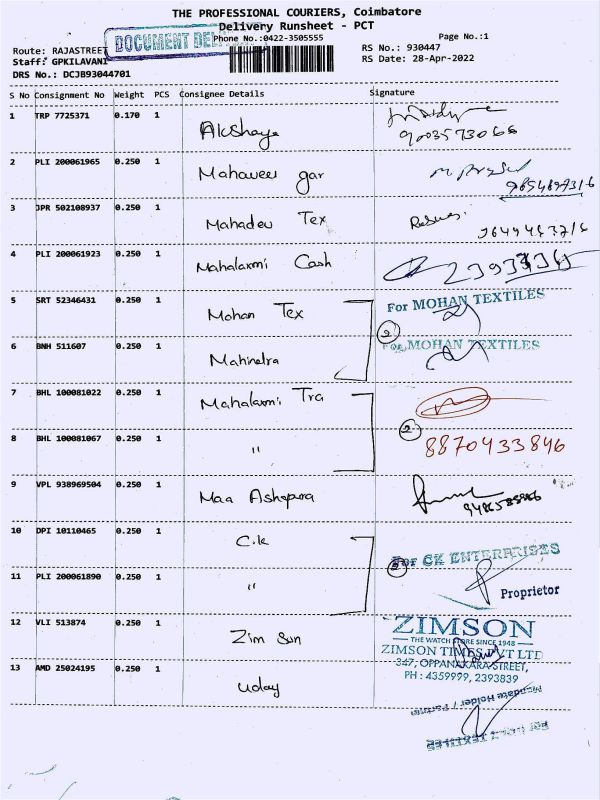 THE PROFESSIONAL COURIERS, Coimbatore
Delivery Runsheet - PCT
DOCUMENT
Phone No.:0422-3505555
Page No.:1
Route: RAJASTREET
RS No.: 930447
Staff: GPKILAVANI
RS Date: 28-Apr-2022
DRS No.: DCJB93044701
S No Consignment No Weight PCS Consignee Details Signature
1 TRP 7725371 0.170 1 Akshaya
9003573066
2 PLI 200061965 0.250 1 Mahaveer gar
3 JPR 502108937 0.250 1 Mahadev Tex
4 PLI 200061923 0.250 1 Mahalaxmi Cash
5 SRT 52346431 0.250 1 Mohan Tex
For MOHAN TEXTILES
2
6 BNH 511607 0.250 1 Mahindra
For MOHAN TEXTILES
7 BHL 100081022 0.250 1 Mahalaxmi Tra
2
8 BHL 100081067 0.250 1 "
8870433846
9 VPL 938969504 0.250 1 Maa Ashapura
10 DPI 10110465 0.250 1 C.k
For CK ENTERPRISES
11 PLI 200061890 0.250 1 "
Proprietor
12 VLI 513874 0.250 1 Zim Sun
ZIMSON
THE WATCH STORE SINCE 1948
ZIMSON TIMES PVT LTD
347, OPPANAKARA STREET,
PH : 4359999, 2393839
13 AMD 25024195 0.250 1 uday